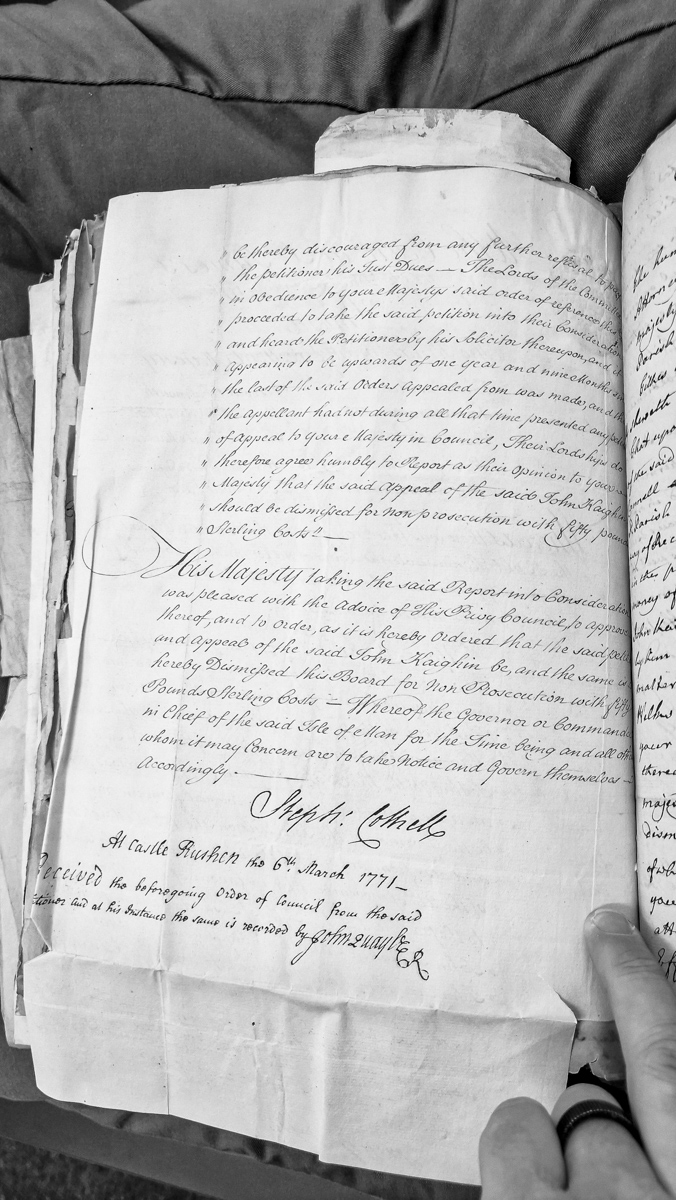 " be thereby discouraged from any further refusal to pay
" the petitioner his Just Dues — The Lords of the Committee
" in Obedience to your Majestys said order of reference this
" proceeded to take the said petition into their Consideration
" and heard the Petitioner by his Solicitor thereupon, and it
" appearing to be upwards of one year and nine Months
" the last of the said Orders Appealed from was made, and
" the appellant had not during all that time presented any
" of Appeal to your Majesty in Council, Their Lordships do
" therefore agree humbly to Report as their Opinion to your
" Majesty that the said Appeal of the said John Kaighin
" should be dismissed for non prosecution with fifty pounds
" Sterling Costs" —
His Majesty taking the said Report into Consideration
was pleased with the Advice of His Privy Council to approve
thereof, and to order, as it is hereby Ordered that the said
and appeal of the said John Kaighin be, and the same is
hereby Dismissed this Board for Non Prosecution with fifty
Pounds Sterling Costs — Whereof the Governor or Commander
in Chief of the said Isle of Man for the Time being and all
whom it may Concern are to take Notice and Govern themselves
Accordingly. —
Steph: Cottrell
At Castle Rushen the 6th. March 1771 —
Received the beforegoing Order of Council from the said
and at his Instance the same is recorded by John Quayle
CR
the
majesty
the said
Parish
in the
money of
by him
your
majes
of
your
att